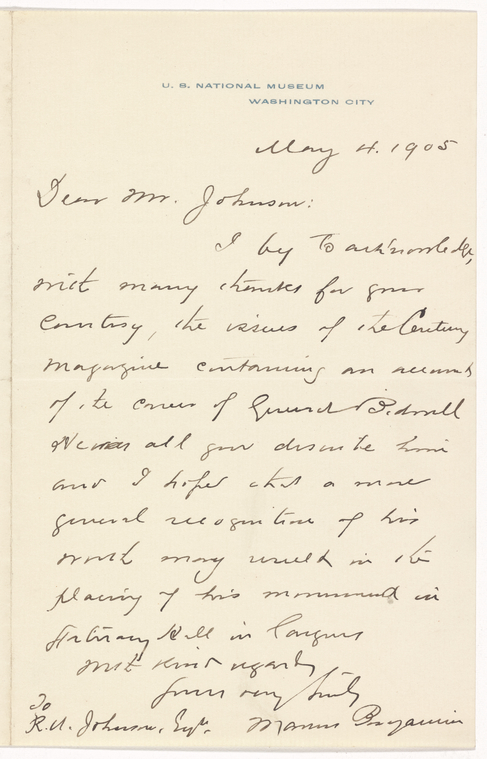 U. S. NATIONAL MUSEUM
WASHINGTON CITY
May 4. 1905
Dear Mr. Johnson:
I beg to acknowledge,
with many thanks for your
courtesy, the issues of the Century
Magazine containing an account
of the career of General Bidwell
He was all you describe him
and I hope that a more
general recognition of his
worth may result in the
placing of his monument in
Statuary Hall in Congress
With kind regards
Yours very truly
Marcus Benjamin
To
R. U. Johnson, Esqr.